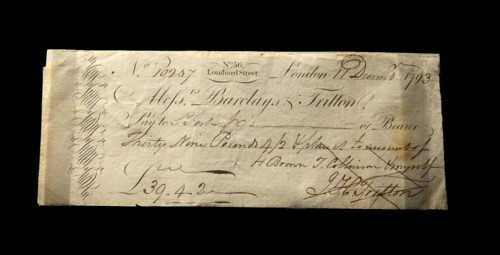 No. 10257 No. 56, Lombard Street London 11 Decemr. 1793
Messrs. Barclays & Tritton
Pay to or Bearer
Thirty Nine Pounds 4/2 & place to account of
H Brown T. Collinson & myself
£39.4.2 J. H. Tritton